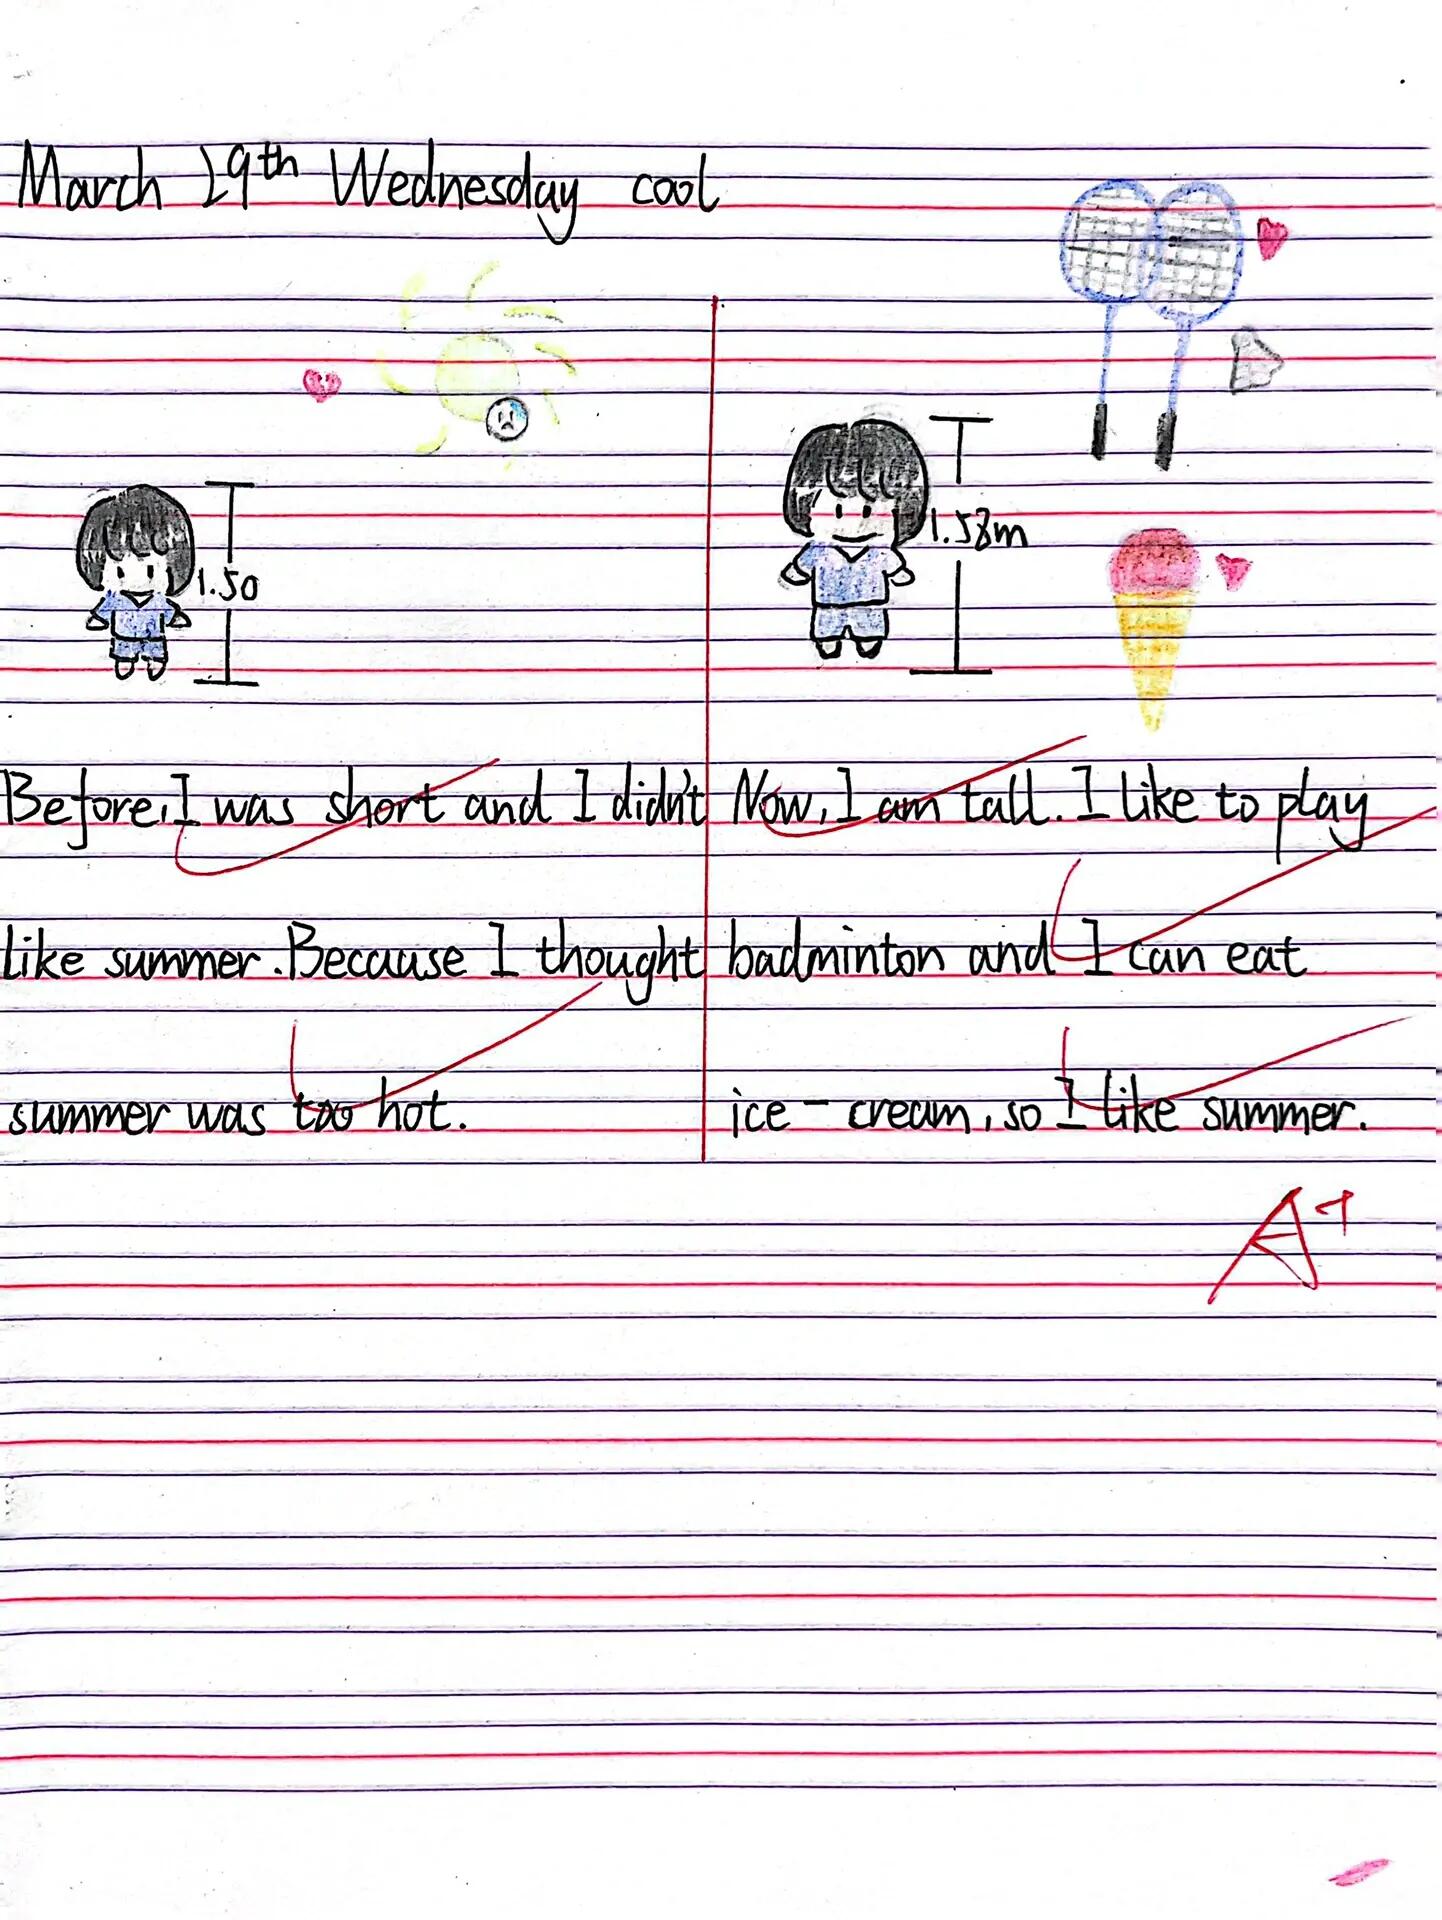 March 29th Wednesday cool
1.50
Before, I was short and I didn't
like summer. Because I thought
summer was too hot.
1.58m
Now, I am tall. I like to play
badminton and I can eat
ice-cream, so I like summer.
A+